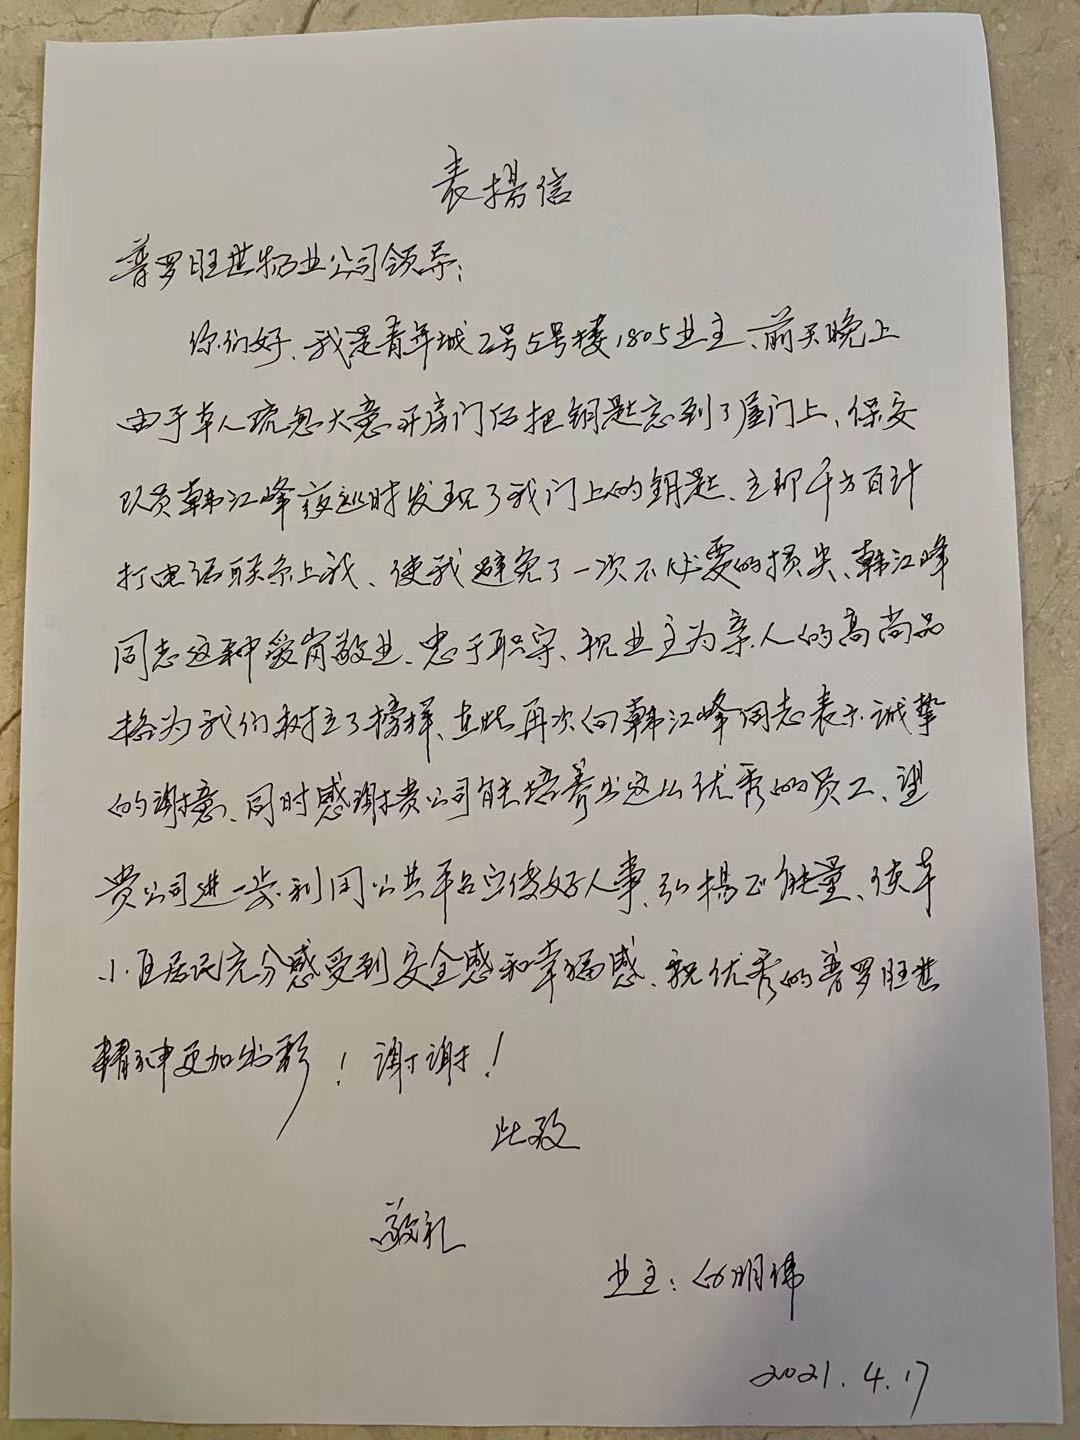 表揚信
普罗旺世物业公司领导:
你们好、我是青年城2号5号楼1805业主、前天晚上
由于本人疏忽大意开房门后把钥匙忘到了屋门上、保安
队员韩江峰夜巡时发现了我门上的钥匙、立即千方百计
打电话联系上我、使我避免了一次不必要的损失、韩江峰
同志这种爱岗敬业、忠于职守、视业主为亲人的高尚品
格为我们树立了榜样、在此再次向韩江峰同志表示诚挚
的谢意、同时感谢贵公司能培养出这么优秀的员工、望
贵公司进一步利用公共平台宣传好人事、弘揚正能量、使本
小区居民充分感受到安全感和幸福感、祝优秀的普罗旺世
精神更加出彩！谢谢！
此致
敬礼
业主：明伟
2021.4.17